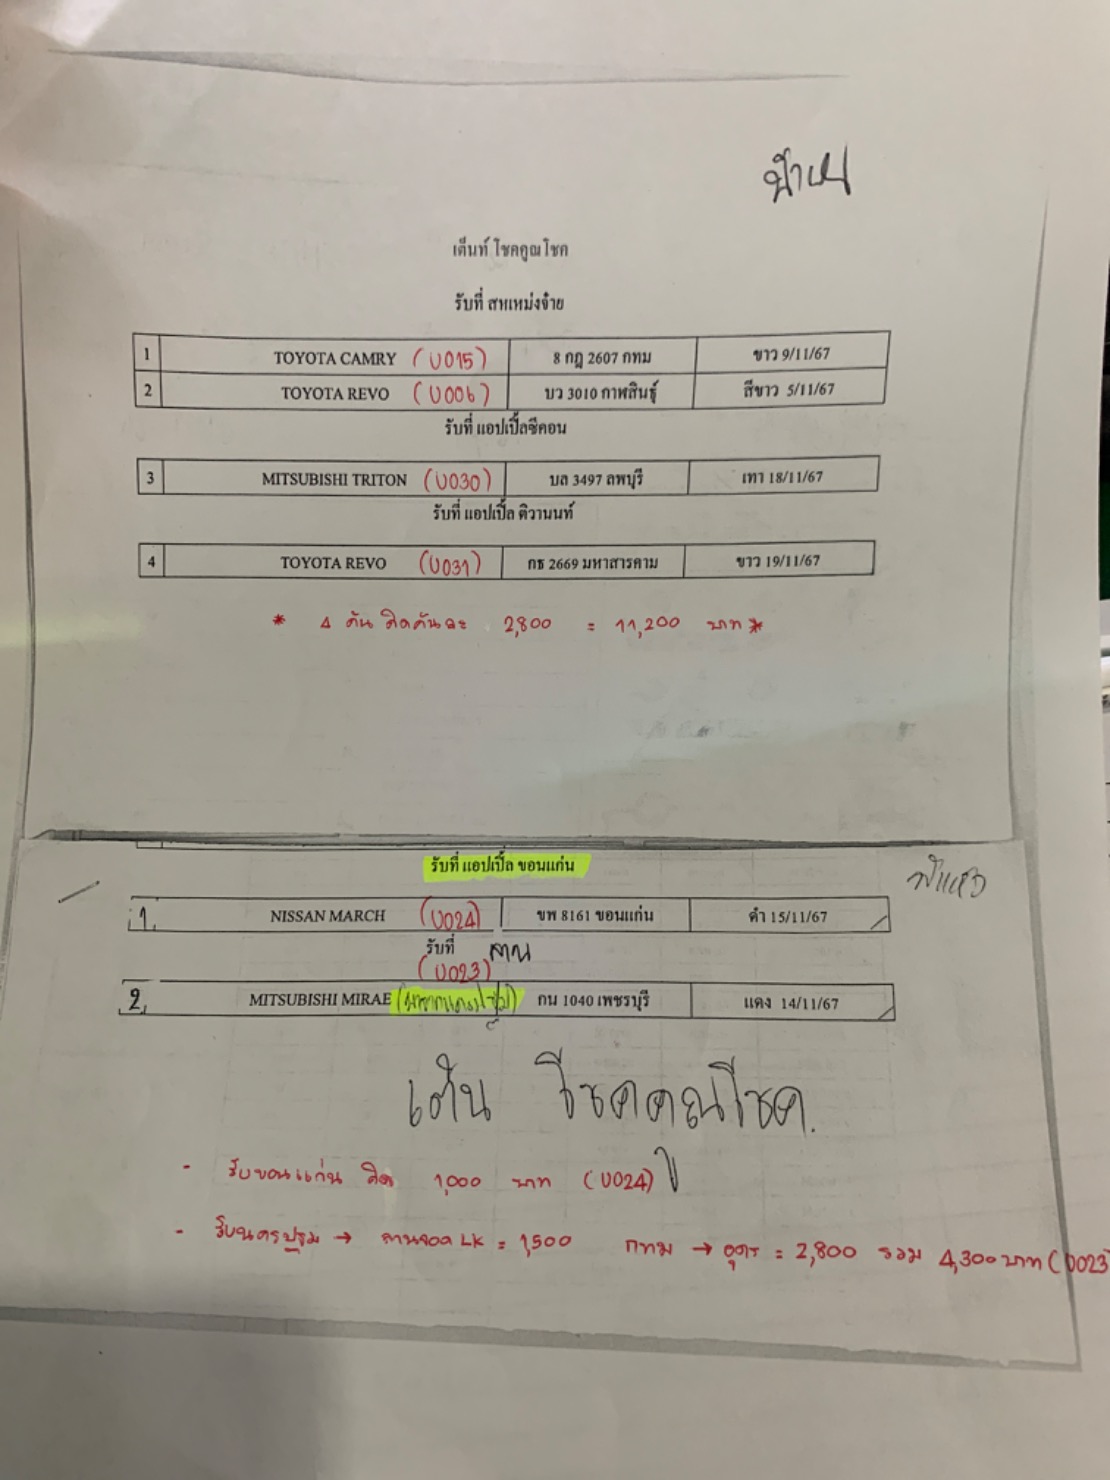 เต็นท์ โชคคูณโชค
รับที่ สหเหม่งจ๋าย
1 TOYOTA CAMRY (U015) 8 กฎ 2607 กทม ขาว 9/11/67
2 TOYOTA REVO (U006) บว 3010 กาฬสินธุ์ สีขาว 5/11/67
รับที่ แอปเปิ้ลซีคอน
3 MITSUBISHI TRITON (U030) บล 3497 ลพบุรี เทา 18/11/67
รับที่ แอปเปิ้ล ติวานนท์
4 TOYOTA REVO (U031) กธ 2669 มหาสารคาม ขาว 19/11/67
* 4 คัน คิดคันละ 2,800 = 11,200 บาท *
รับที่ แอปเปิ้ล ขอนแก่น
1, NISSAN MARCH (U024) ขพ 8161 ขอนแก่น ดำ 15/11/67
รับที่ ลาน
(U023)
2, MITSUBISHI MIRAE กน 1040 เพชรบุรี แดง 14/11/67
เต้น โชคคูณโชค.
- รับขอนแก่น คิด 1,000 บาท (U024)
- รับนครปฐม → ลานจอด LK = 1,500 กทม → อุดร = 2,800 รวม 4,300 บาท (U023